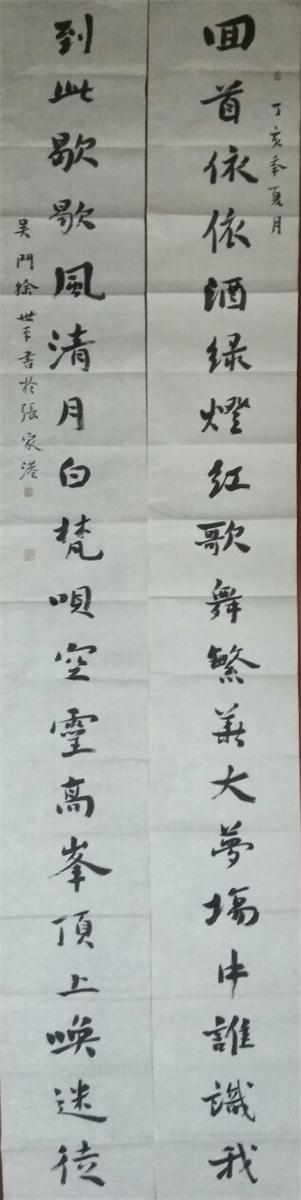 丁亥秊夏月
回首依依酒緑燈紅歌舞繁華大夢場中誰識我
到此歇歇風清月白梵唄空靈高峯頂上喚迷徒
吴門徐世平書於張家港